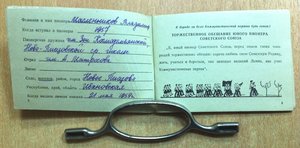 Фамилия и имя пионера Калинников Владимир
Когда вступил в пионеры
1957
Пионерская дружина им. Зои Космодемьянской
Ново-
школы
Отряд им. А. Матросова
Село, город, район, город Новые
Республика, край, область Ивановская
Когда выдан билет 21 мая 1957 г.
К борьбе за дело Коммунистической партии будь готов!
ТОРЖЕСТВЕННОЕ ОБЕЩАНИЕ ЮНОГО ПИОНЕРА
СОВЕТСКОГО СОЮЗА
Я, юный пионер Советского Союза, перед лицом своих това-
рищей торжественно обещаю горячо любить свою Советскую Родину,
жить, учиться и бороться, как завещал великий Ленин, как учит
Коммунистическая партия.